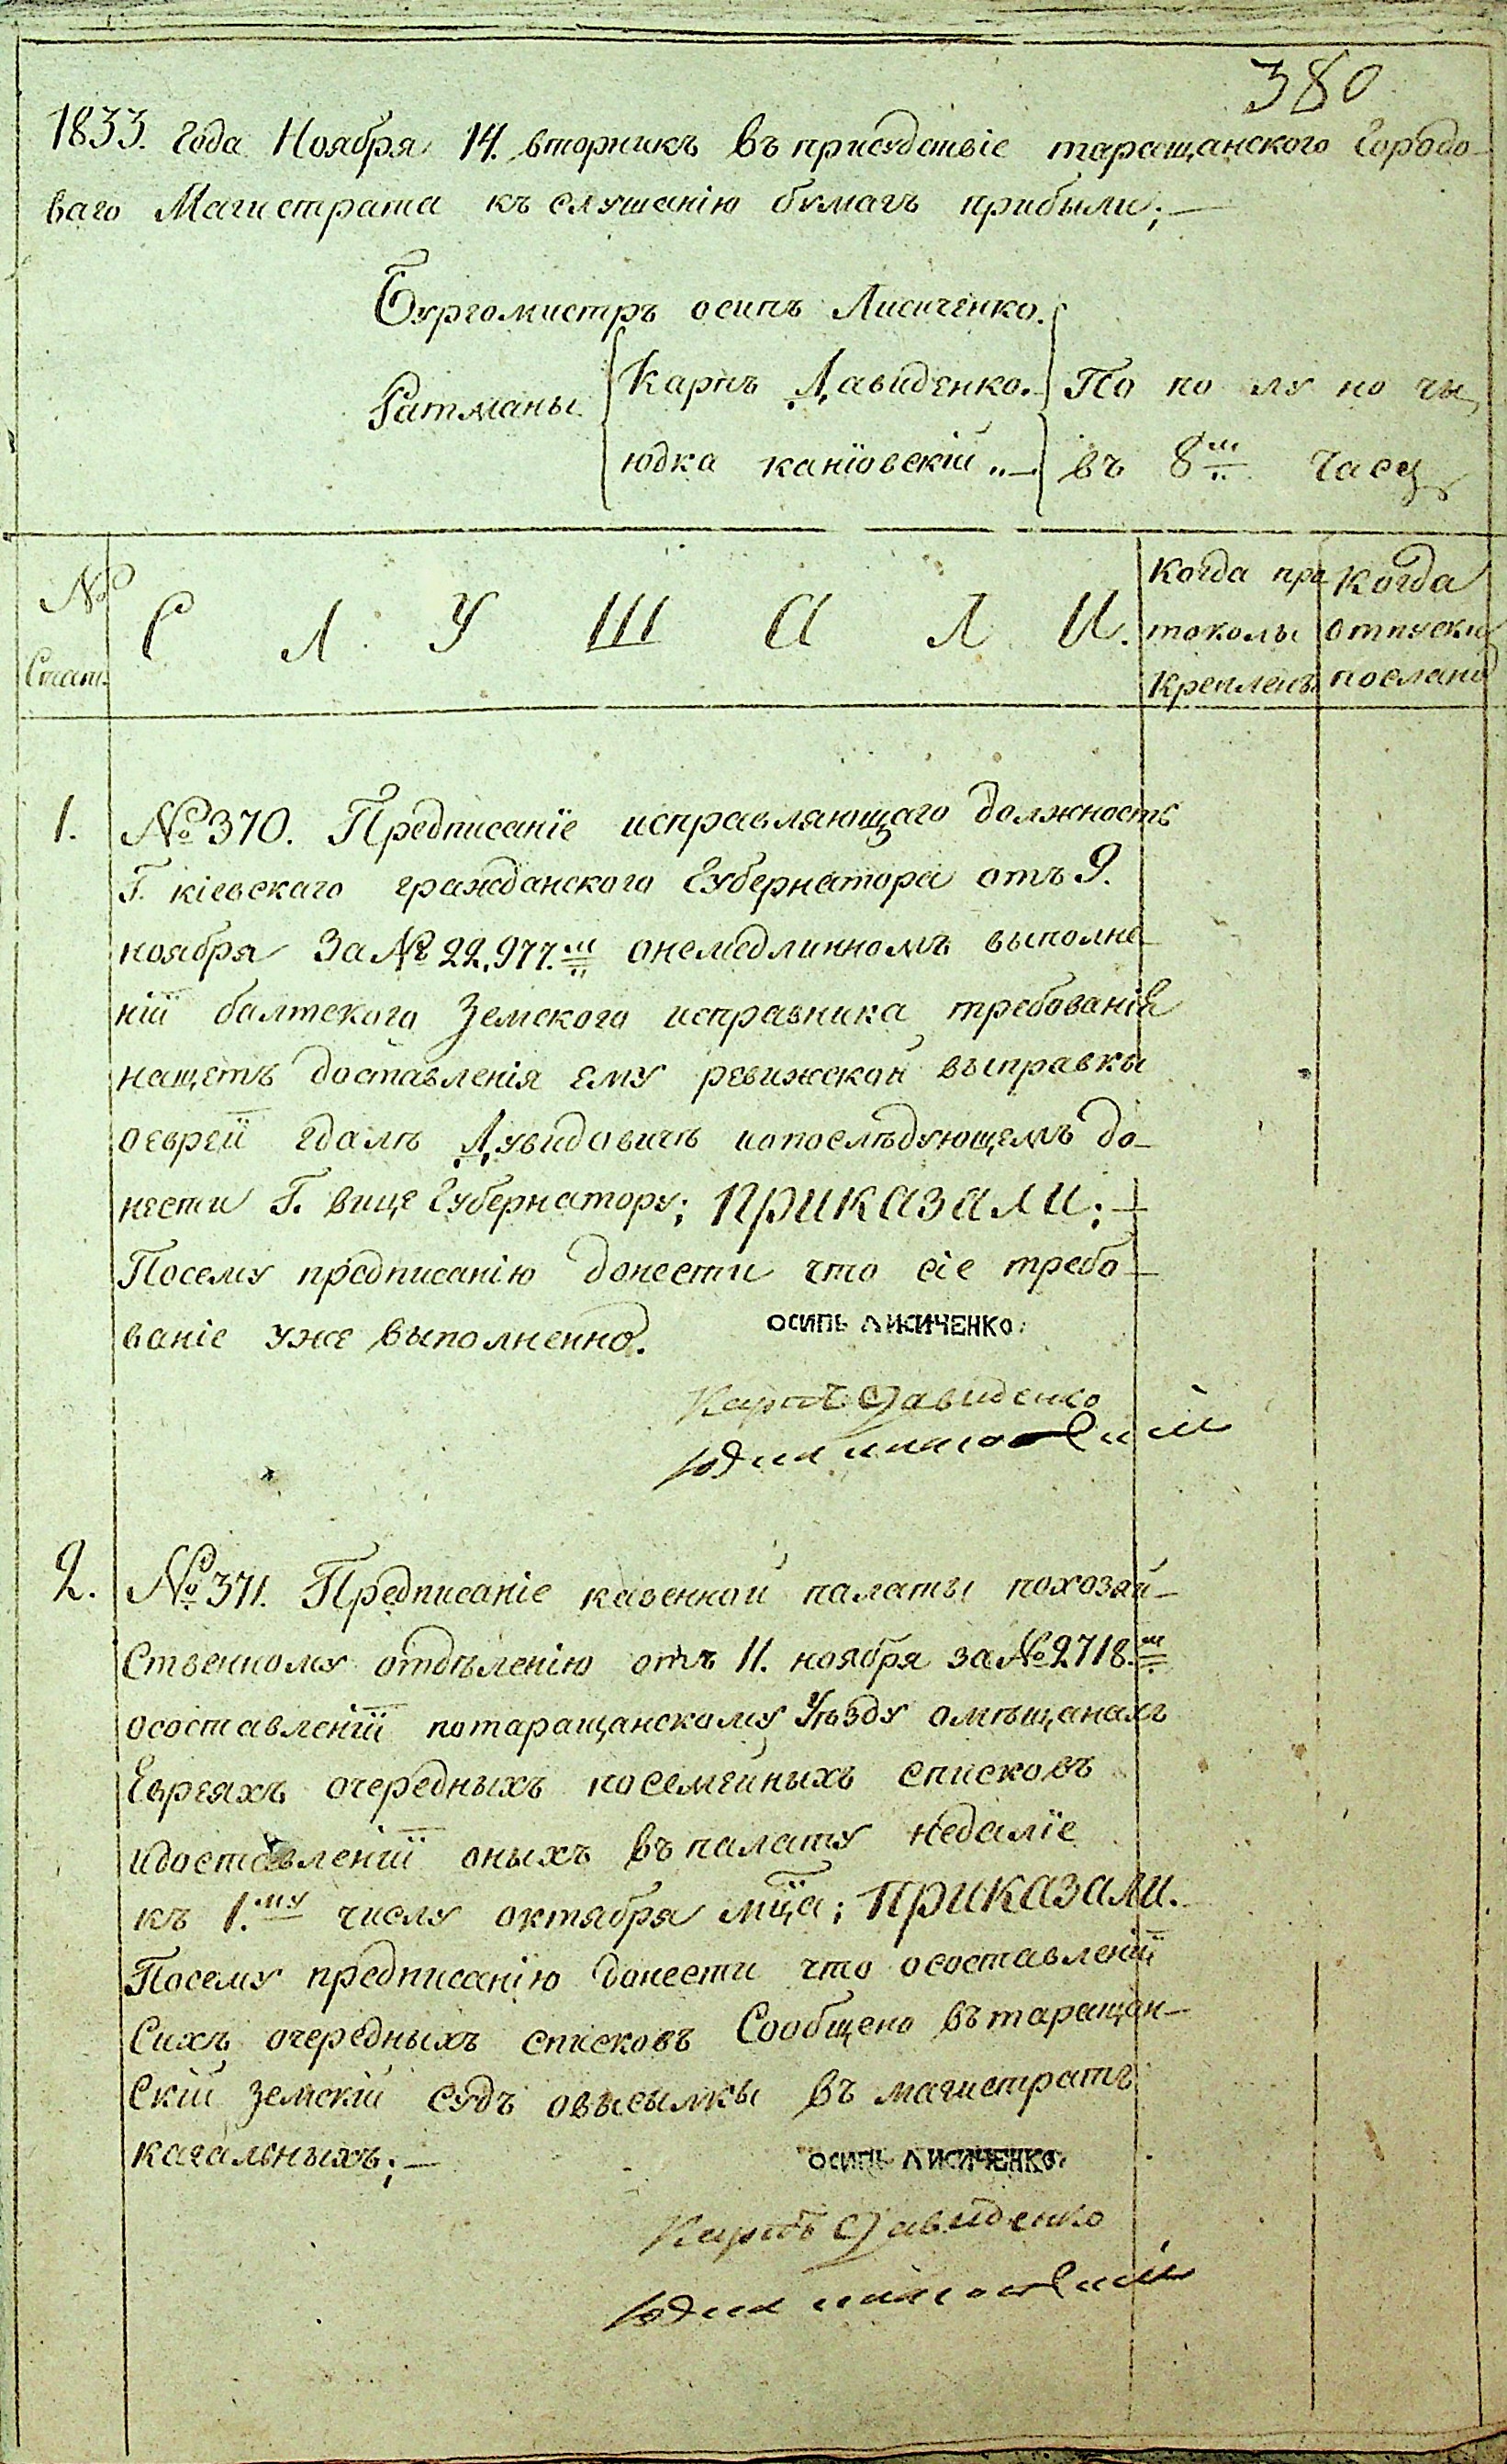 380
1833. года Ноября 14. вторникъ въ присудствіе таращанского Городо-
ваго Магистрата къ слушанію бумагъ прибыли;—
Бургомистръ осипъ Лисиченко.
Ратманы Карпъ Давиденко. По по лу но чи
юдка каніовскій въ 8ш часу
№ Стат.
С Л У Ш А Л И.
Когда про
токолы
креплены
Когда
отпуски
посланы
1. №370. Предписаніе исправляющаго должность
Г. кіевскаго гражданского Губернатора отъ 9.
ноября За № 22,977.м онемедлинномъ выполне
ніи балтского Земского исправника требованія
нащетъ доставленія ему ревижской выправки
оеврей гдалъ Дувидовичъ ипопослѣдующемъ до-
нести Г. вице Губернатору; приказали;—
Посему предписанію донести что сіе требо-
ваніе уже выполненно.
осипъ лисиченко:
Карпъ Давиденко
юдка каніовский
2. №371. Предписаніе казенной палаты похозяй-
ственному отдѣленію отъ 11. ноября за №2718.м
осоставленіи потаращанскому уѣзду омѣщанахъ
Евреяхъ очередныхъ посемейныхъ списковъ
идоставленіи оныхъ въ палату недаліе
къ 1.му числу октября мца; приказали.
Посему предписанію донести что осоставленіи
Сихъ очередныхъ списковъ Сообщено въ таращан-
Скій земскій судъ овысылки въ магистратъ
кагальныхъ;—
осипъ лисиченко:
Карпъ Давиденко
юдка каніовский